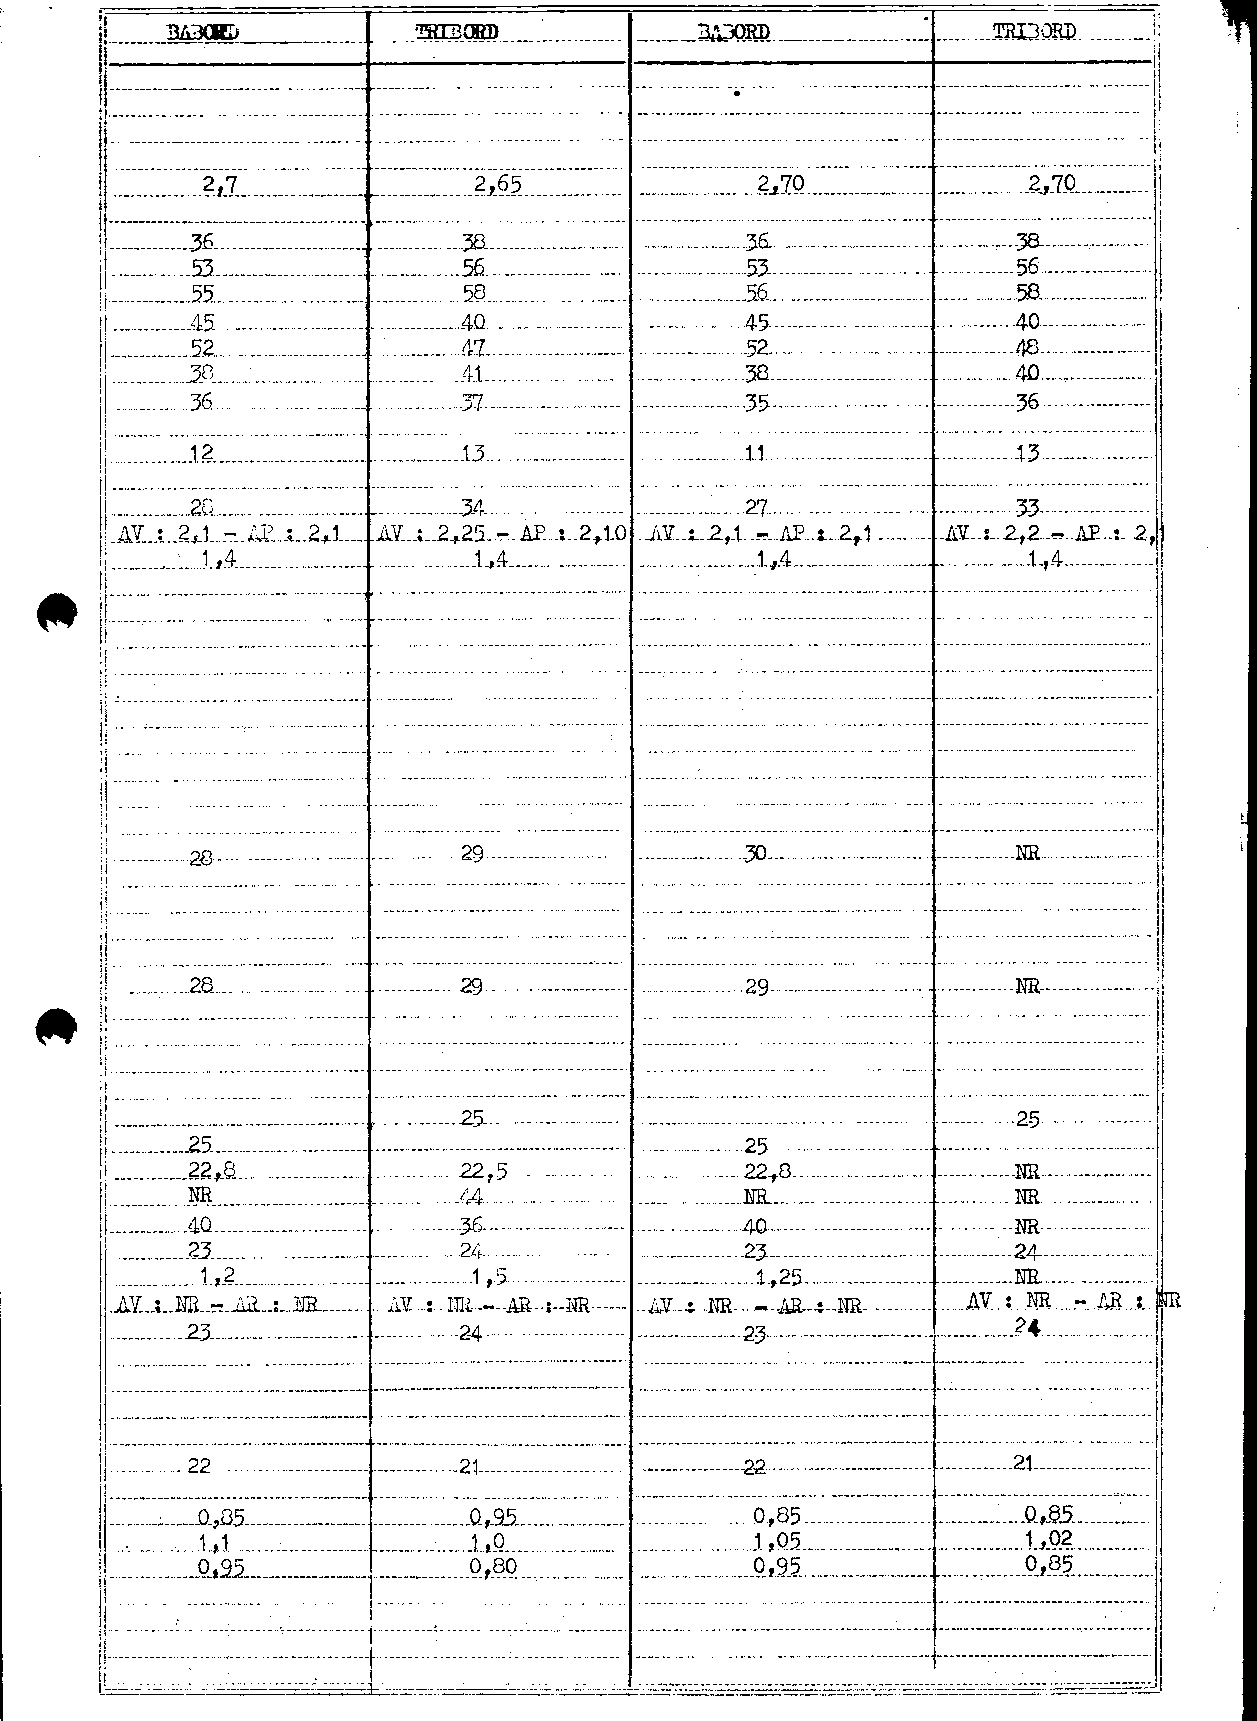 BABORD TRIBORD BABORD TRIBORD
2,7 2,65 2,70 2,70
36 38 36 38
53 56 53 56
55 58 56 58
45 40 45 40
52 47 52 48
38 41 38 40
36 37 35 36
12 13 11 13
28 34 27 33
AV : 2,1 - AP : 2,1 AV : 2,25 - AP : 2,10 AV : 2,1 - AP : 2,1 AV : 2,2 - AP : 2,1
1,4 1,4 1,4 1,4
28 29 30 NR
28 29 29 NR
25 25
25 25
22,8 22,5 22,8 NR
NR 44 NR NR
40 36 40 NR
23 24 23 24
1,2 1,5 1,25 NR
AV : NR - AR : NR AV : NR - AR : NR AV : NR - AR : NR AV : NR - AR : NR
23 24 23 24
22 21 22 21
0,85 0,95 0,85 0,85
1,1 1,0 1,05 1,02
0,95 0,80 0,95 0,85